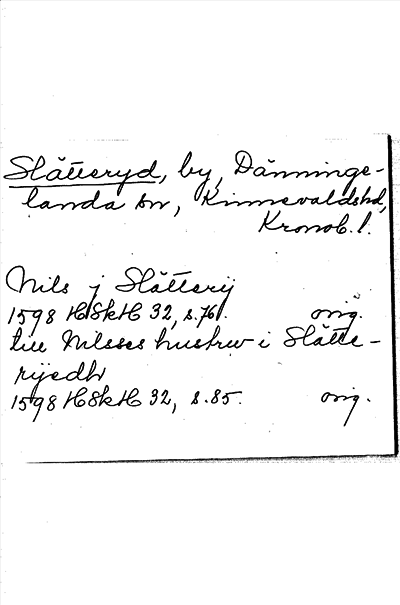 Slätteryd, by, Dänninge-
landa sn, Kinnevaldshd,
Kronob. l.
Nils j Slätterij
1598 HSkH 32, s.76. orig.
till Nilses hustrw i Slätte-
rijedh
1598 HSkH 32, s.85. orig.